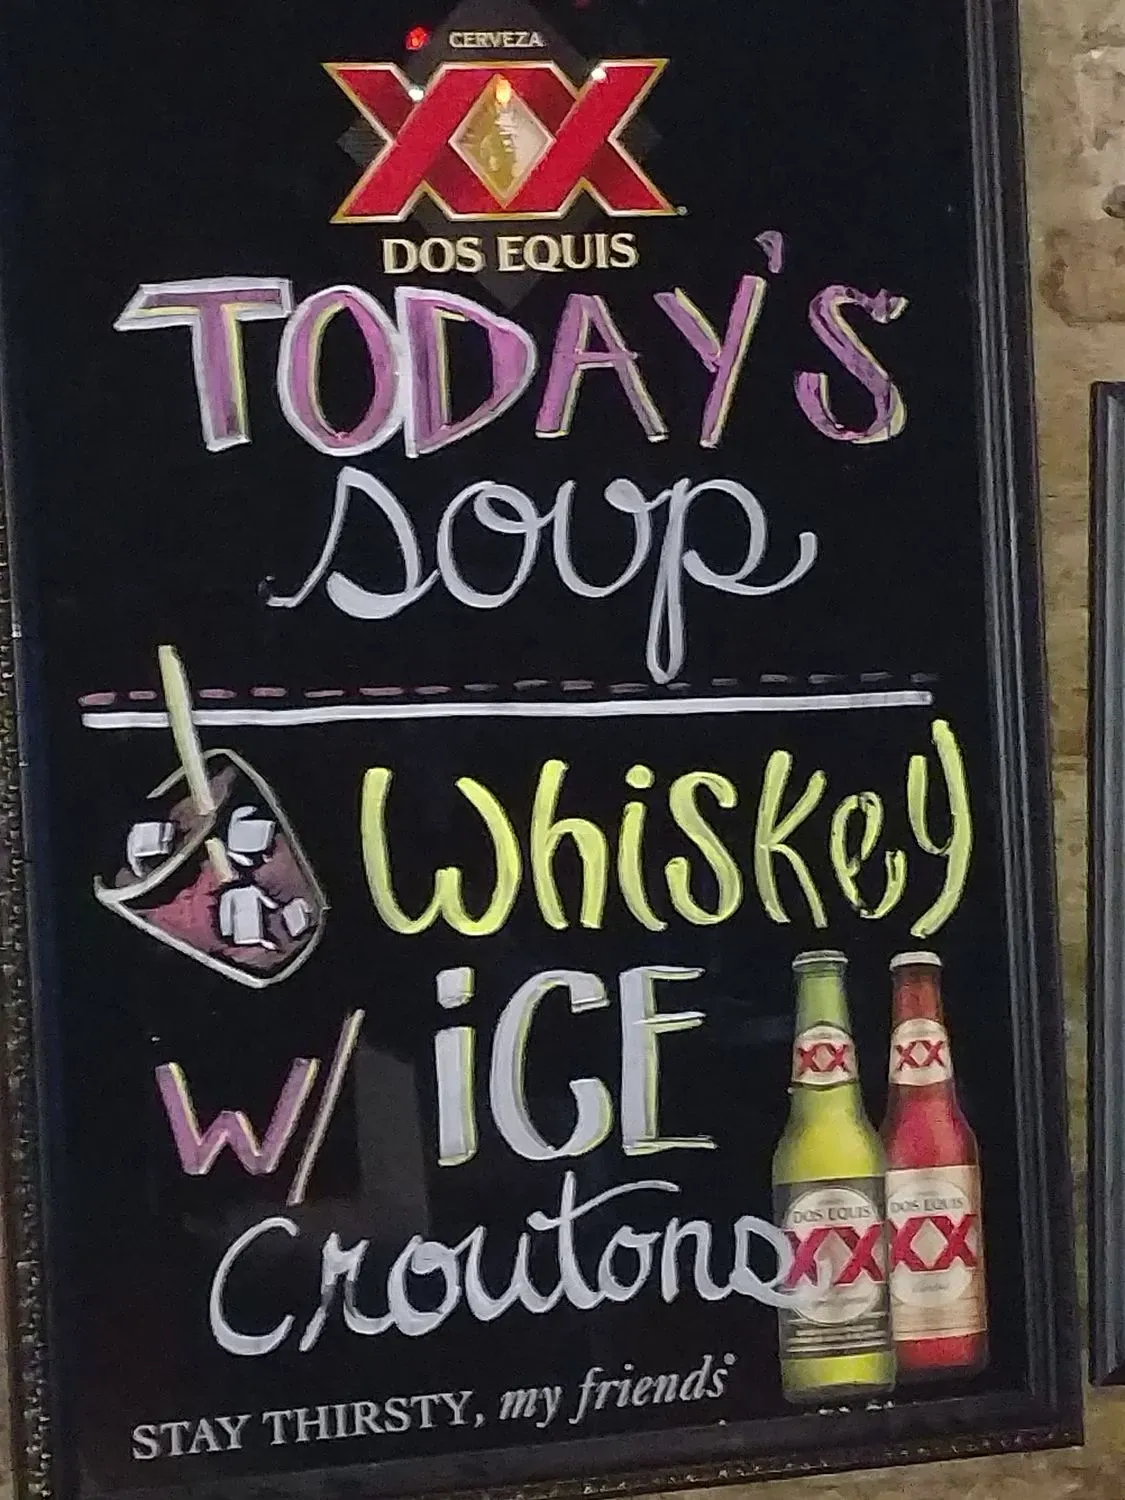 CERVEZA
XX
DOS EQUIS
TODAY'S
soup
Whiskey
w/ iCE
Croutons
XX
XX
DOS EQUIS
XX
DOS EQUIS
XX
STAY THIRSTY, my friends